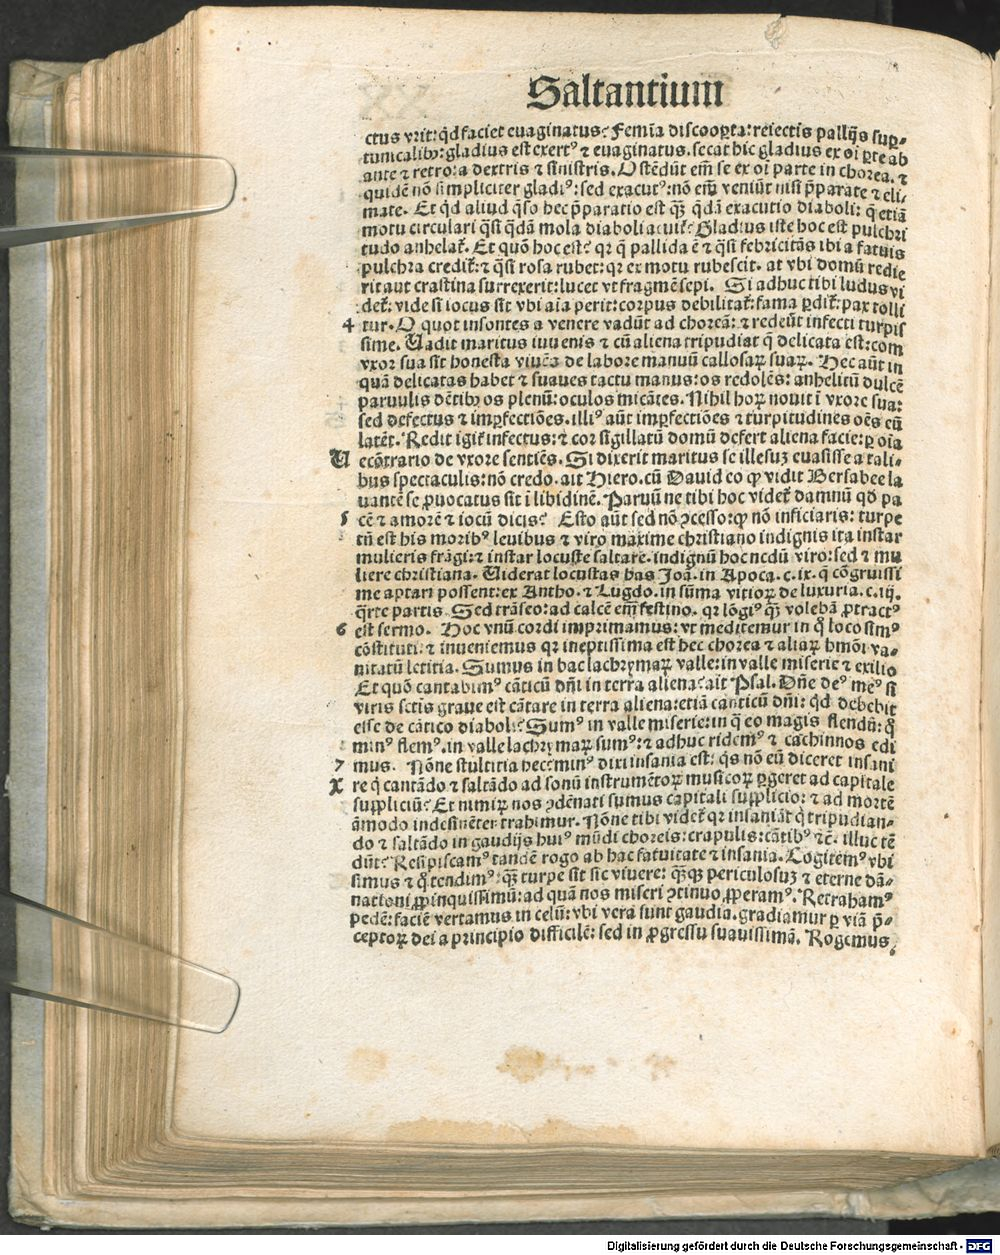 Saltantium
ctus vrit: qd faciet euaginatus? Femīa discooꝑta: reiectis pallijs suꝑ-
tunicalibꝰ: gladius est exertꝰ ⁊ euaginatus. secat hic gladius ex oī ꝑte ab
ante ⁊ retro: a dextris ⁊ sinistris. Ostēdūt em̄ se ex oī parte in chorea. ⁊
quidē nō simpliciter gladiꝰ: sed exacutꝰ: nō em̄ veniūt nisi p̄parate ⁊ eli-
mate. Et qd aliud q̄so hec p̄paratio est q̄ꝫ q̄dā exacutio diaboli: q̄ etiā
motu circulari q̄si q̄dā mola diaboli acuit᷑? Gladius iste hoc est pulchri
tudo anhelat᷑. Et quō hoc est? qꝛ q̄ pallida ē ⁊ q̄si febricitās ibi a fatuis
pulchra credit᷑: ⁊ q̄si rosa rubet: qꝛ ex motu rubescit. at vbi domū redie
rit aut crastina surrexerit: lucet vt fragmē sepi. Si adhuc tibi ludus vi
det᷑: vide si iocus sit vbi aīa perit: corpus debilitat᷑: fama ꝑdit᷑: pax tolli
4 tur. O quot insontes a venere vadūt ad choreā: ⁊ redeūt infecti turpis
sime. Uadit maritus iuuenis ⁊ cū aliena tripudiat q̄ delicata est: com
vxor sua sit honesta viuēs de labore manuū callosaꝝ suaꝝ. Hec aūt in
quā delicatas habet ⁊ suaues tactu manus: os redolēs: anhelitū dulcē
paruulis dētibꝰ os plenū: oculos micātes. Nihil hoꝝ nouit ī vxore sua:
sed defectus ⁊ imꝑfectiōes. illiꝰ aūt imꝑfectiōes ⁊ turpitudines oēs eū
latēt. Redit igit᷑ infectus: ⁊ cor sigillatū domū defert aliena facie: ꝑ oīa
U ecōtrario de vxore sentiēs. Si dixerit maritus se illesuꝫ euasisse a tali-
bus spectaculis: nō credo. ait Hiero. cū Dauid eo ꝙ vidit Bersabee la
uantē se ꝓuocatus sit ī libidinē. Paruū ne tibi hoc videt᷑ damnū qd pa
5 cē ⁊ amorē ⁊ iocū dicis? Esto aūt sed nō ꝯcesso: ꝙ nō inficiaris: turpe
tn̄ est his moribꝰ leuibus ⁊ viro maxime christiano indignis ita instar
mulieris frāgi: ⁊ instar locuste saltare. indignū hoc nedū viro: sed ⁊ mu
liere christiana. Uiderat locustas has Joā. in Apoca. c. ix. q̄ cōgruissi
me aptari possent: ex Antho. ⁊ Lugdo. in sūma vitioꝝ de luxuria. c. iij.
q̄rte partis. Sed trāseo: ad calcē em̄ festino. qꝛ lōgiꝰ q̄ꝫ volebā ꝓtractꝰ
6 est sermo. Hoc vnū cordi imprimamus: vt meditemur in q̊ loco simꝰ
cōstituti: ⁊ inueniemus qꝛ ineptissima est hec chorea ⁊ aliaꝝ hmōi va-
nitatū letitia. Sumus in hac lachrymaꝝ valle: in valle miserie ⁊ exilio
Et quō cantabimꝰ cāticū dn̄i in terra aliena? ait Psal. Dn̄e deꝰ meꝰ si
viris sctis graue est cātare in terra aliena: etiā canticū dn̄i: qd debebit
esse de cātico diaboli? Sumꝰ in valle miserie: in q̄ eo magis flendū: q̊
minꝰ flemꝰ. in valle lachrymaꝝ sumꝰ: ⁊ adhuc ridemꝰ ⁊ cachinnos edi
7 mus. Nōne stultitia hec? minꝰ dixi insania est: q̄s nō eū diceret insani
X re q̇ cantādo ⁊ saltādo ad sonū instrumētoꝝ musicoꝝ ꝑgeret ad capitale
suppliciū? Et nimiꝝ nos ꝯdēnati sumus capitali supplicio: ⁊ ad mortē
āmodo indesinēter trahimur. Nōne tibi videt᷑ qꝛ insaniāt q̇ tripudian-
do ⁊ saltādo in gaudijs huiꝰ mūdi choreis: crapulis: cātibꝰ ⁊c̄. illuc tē
dūt? Resipiscamꝰ tandē rogo ab hac fatuitate ⁊ insania. Cogitemꝰ vbi
simus ⁊ q̊ tendimꝰ: q̄ꝫ turpe sit sic viuere: q̄ꝫqꝫ periculosuꝫ ⁊ eterne dā-
nationi ꝓpinquissimū: ad quā nos miseri ꝯtinuo ꝓperamꝰ. Retrahamꝰ
pedē: faciē vertamus in celū: vbi vera sunt gaudia. gradiamur ꝑ viā p̄-
ceptoꝝ dei a principio difficilē: sed in ꝓgressu suauissimā. Rogemus
Digitalisierung gefördert durch die Deutsche Forschungsgemeinschaft - DFG